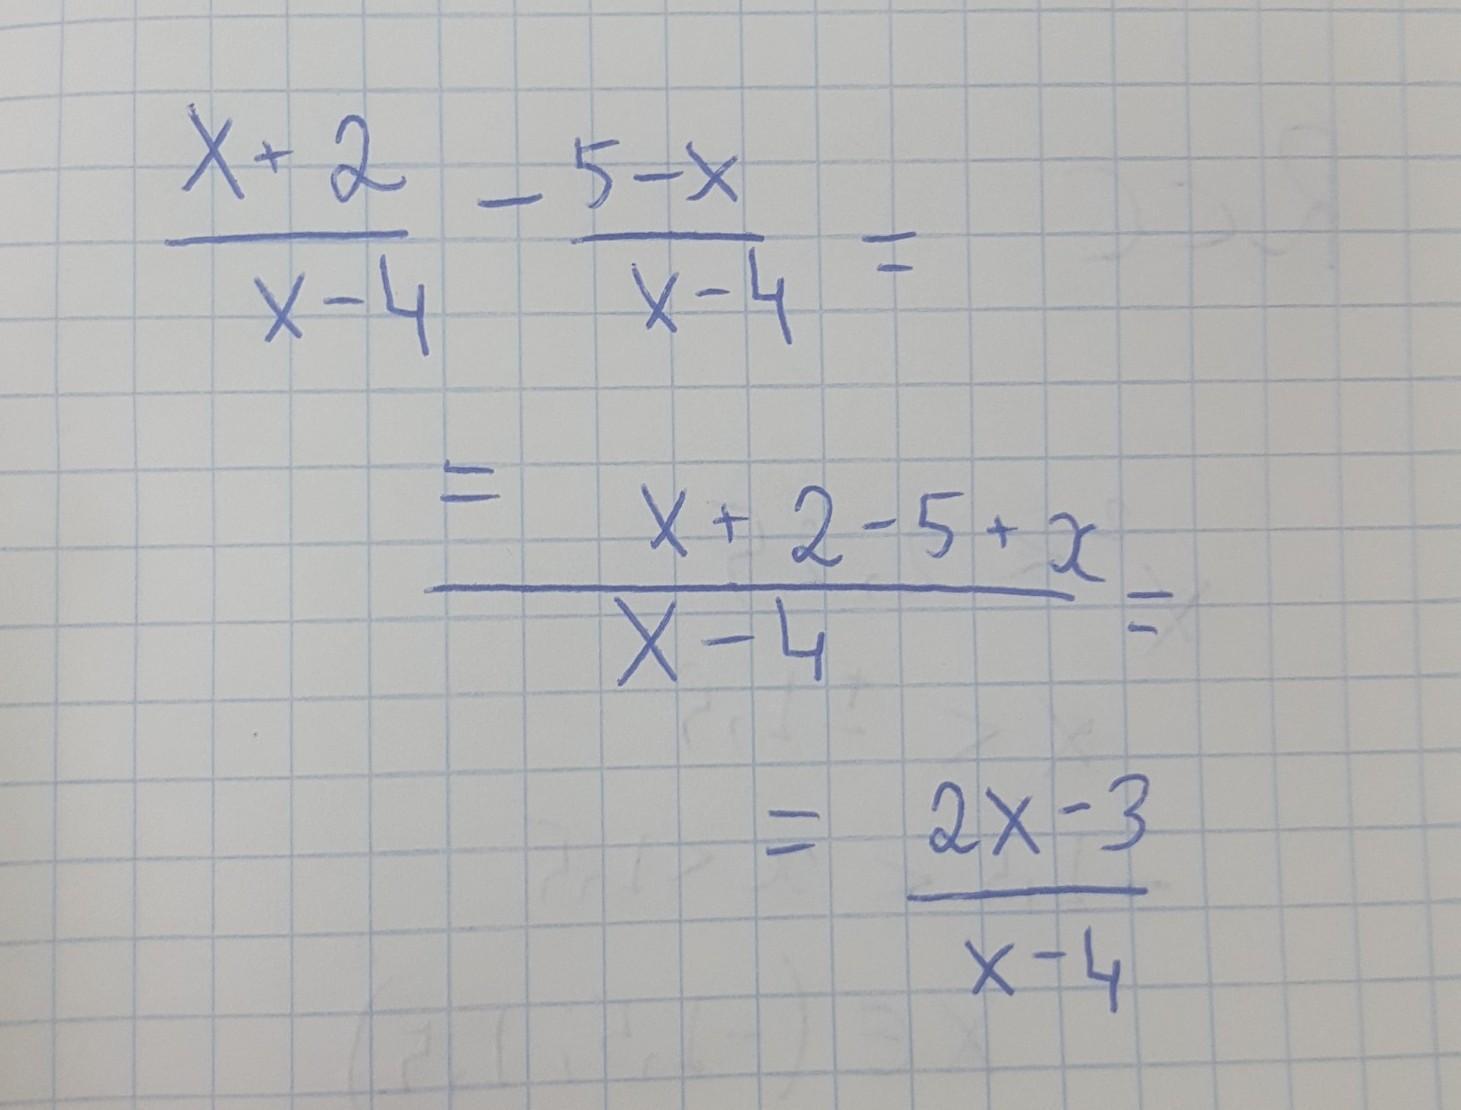 x + 2 / x - 4 - 5 - x / x - 4 =
= x + 2 - 5 + x / x - 4 =
= 2x - 3 / x - 4